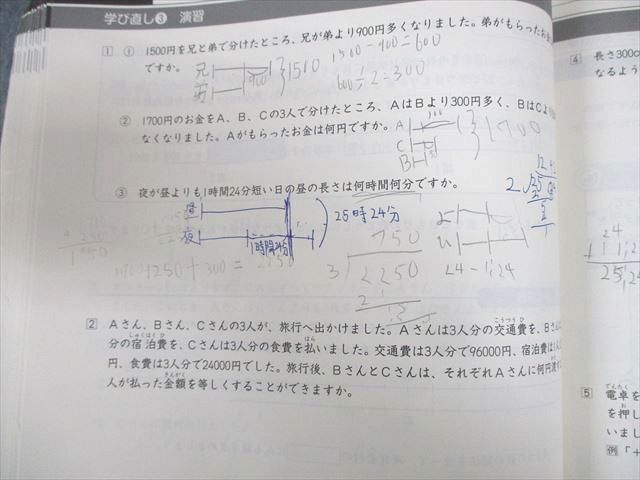 学び直し3 演習
1 ① 1500円を兄と弟で分けたところ、兄が弟より900円多くなりました。弟がもらったお金
ですか。
兄
弟
900
1500
1500-900=600
600÷2=300
② 1700円のお金をA、B、Cの3人で分けたところ、AはBより300円多く、BはCより
なくなりました。Aがもらったお金は何円ですか。
A
C
B
③ 夜が昼よりも1時間24分短い日の昼の長さは何時間何分ですか。
昼
夜
1時間24分
25時24分
24-1,24
750
3
2250
2 Aさん、Bさん、Cさんの3人が、旅行へ出かけました。Aさんは3人分の交通費を、Bさ
分の宿泊費を、Cさんは3人分の食費を払いました。交通費は3人分で96000円、宿泊費は1人
円、食費は3人分で24000円でした。旅行後、BさんとCさんは、それぞれAさんに何円渡
人が払った金額を等しくすることができますか。
4 長さ300c
なるよう
24
5 電卓を
を押し
いまし
例「+